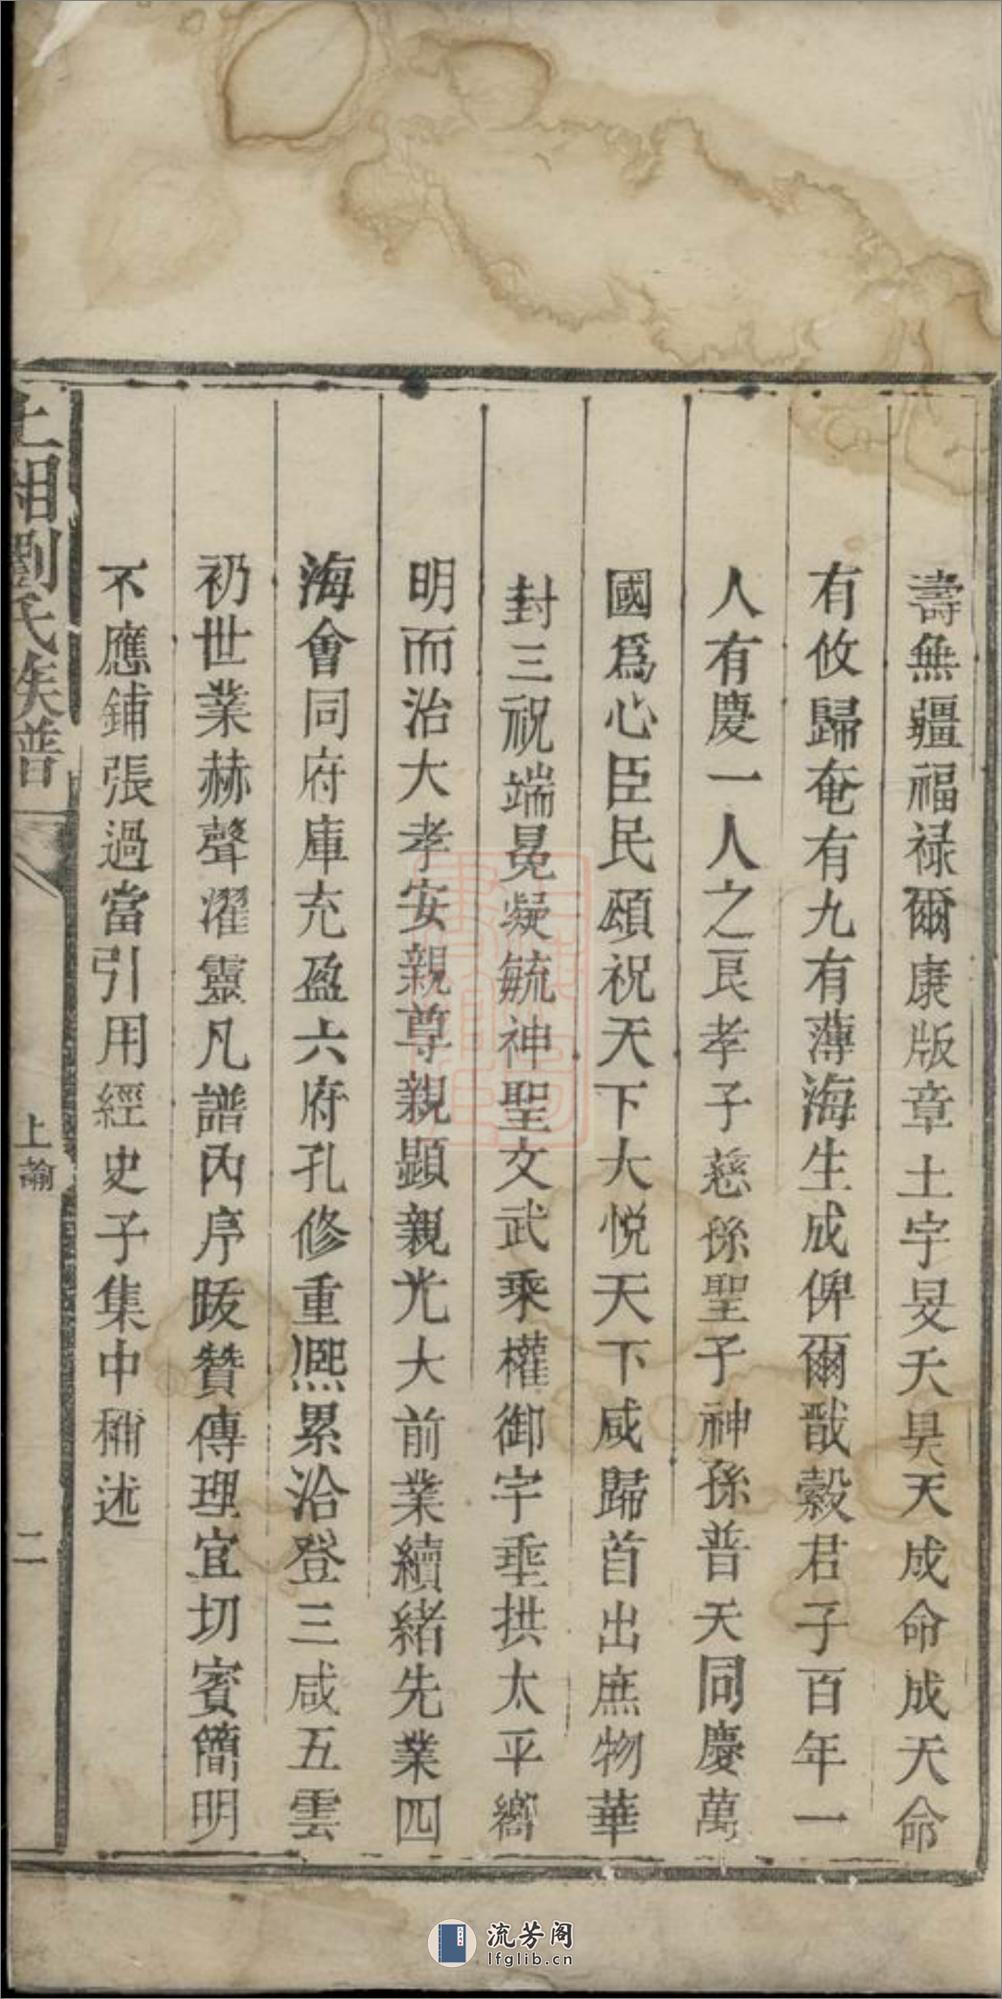 壽無疆福祿爾康版章土宇旻天昊天成命成天命
有攸歸奄有九有薄海生成俾爾戩穀君子百年一
人有慶一人之良孝子慈孫聖子神孫普天同慶萬
國爲心臣民頌祝天下大悅天下咸歸首出庶物華
封三祝端冕凝毓神聖文武乘權御宇垂拱太平嚮
明而治大孝安親尊親顯親光大前業續緒先業四
海會同府庫充盈六府孔修重熙累洽登三咸五雲
礽世業赫聲濯靈凡譜內序跋贊傳理宜切實簡明
不應鋪張過當引用經史子集中稱述
上湘劉氏族譜
上諭
二
流芳阁
lfglib.cn